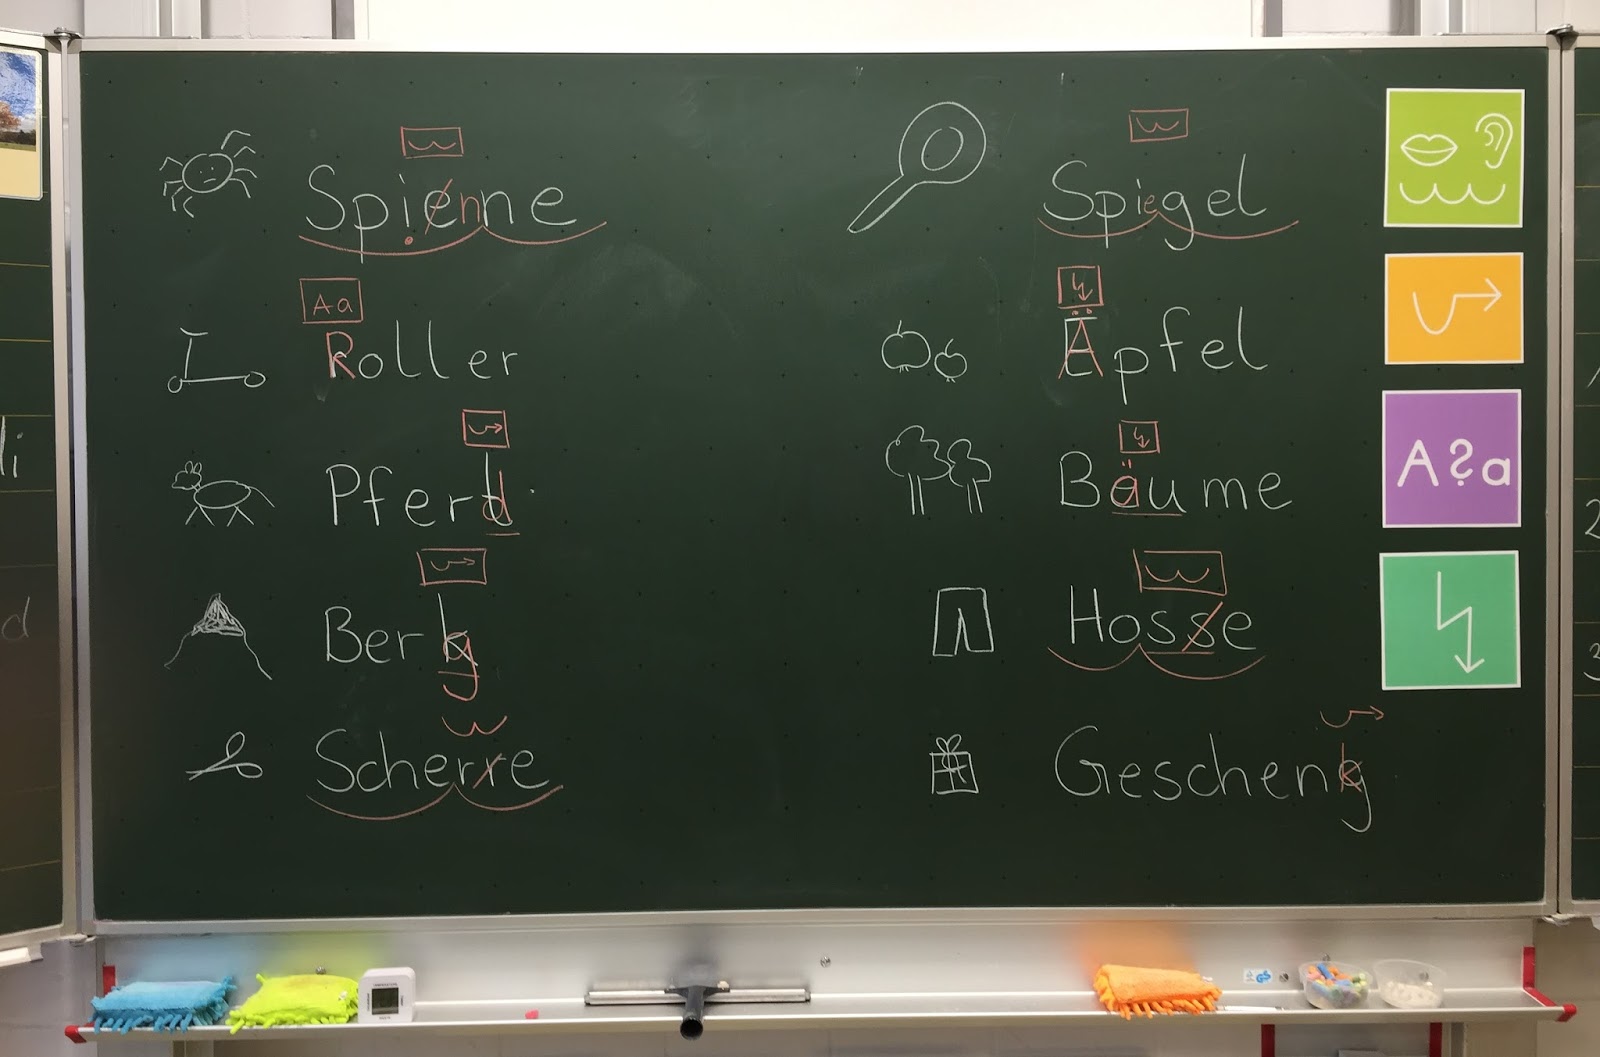 Spienne
Roller
Pferd
Berg
Scherre
Spiegel
Äpfel
Bäume
Hosse
Geschenk
Aa
A?a